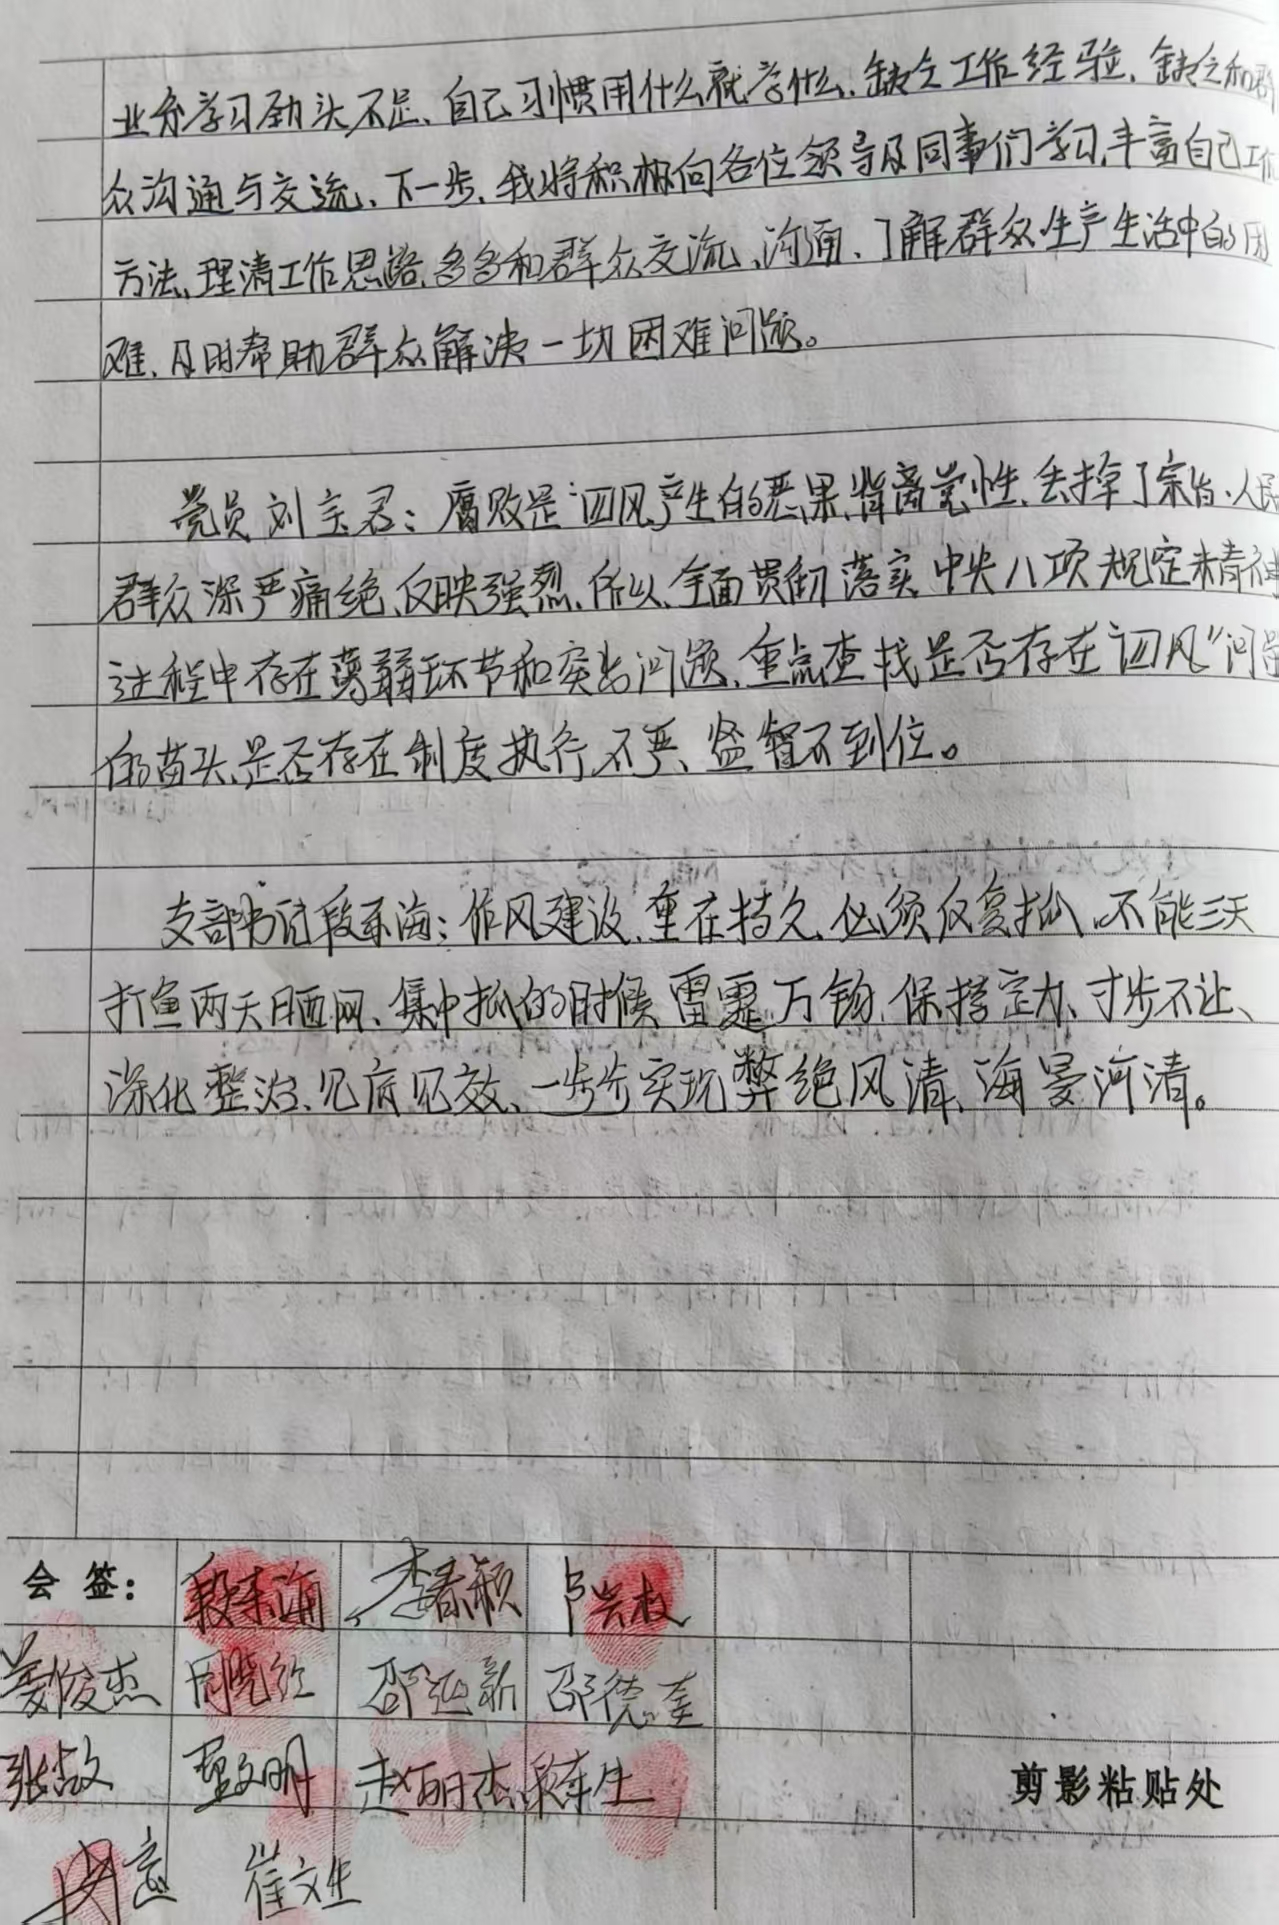 业务学习劲头不足、自己习惯用什么就学什么、缺乏工作经验、缺乏和群
众沟通与交流、下一步、我将积极向各位领导及同事们学习、丰富自己工作
方法、理清工作思路、多多和群众交流、沟通、了解群众生产生活中的困
难、及时帮助群众解决一切困难问题。
党员刘宝君：腐败是“四风”产生的恶果、背离党性、丢掉了宗旨、人民
群众深严痛绝、反映强烈、所以、全面贯彻落实中央八项规定精神
过程中存在薄弱环节和突出问题、重点查找是否存在“四风”问题
的苗头、是否存在制度执行不严、监督不到位。
支部书记段东海：作风建设、重在持久、必须反复抓、不能三天
打鱼两天晒网、集中抓的时候雷霆万钧、保持定力、寸步不让、
深化整治、见底见效、一步步实现弊绝风清、海晏河清。
会签： 段东海 李春颖 卢兴权
姜俊杰 周晓红 邵延新 邵德奎
张敏 文明 赵丽杰 段东生
崔文生
剪影粘贴处